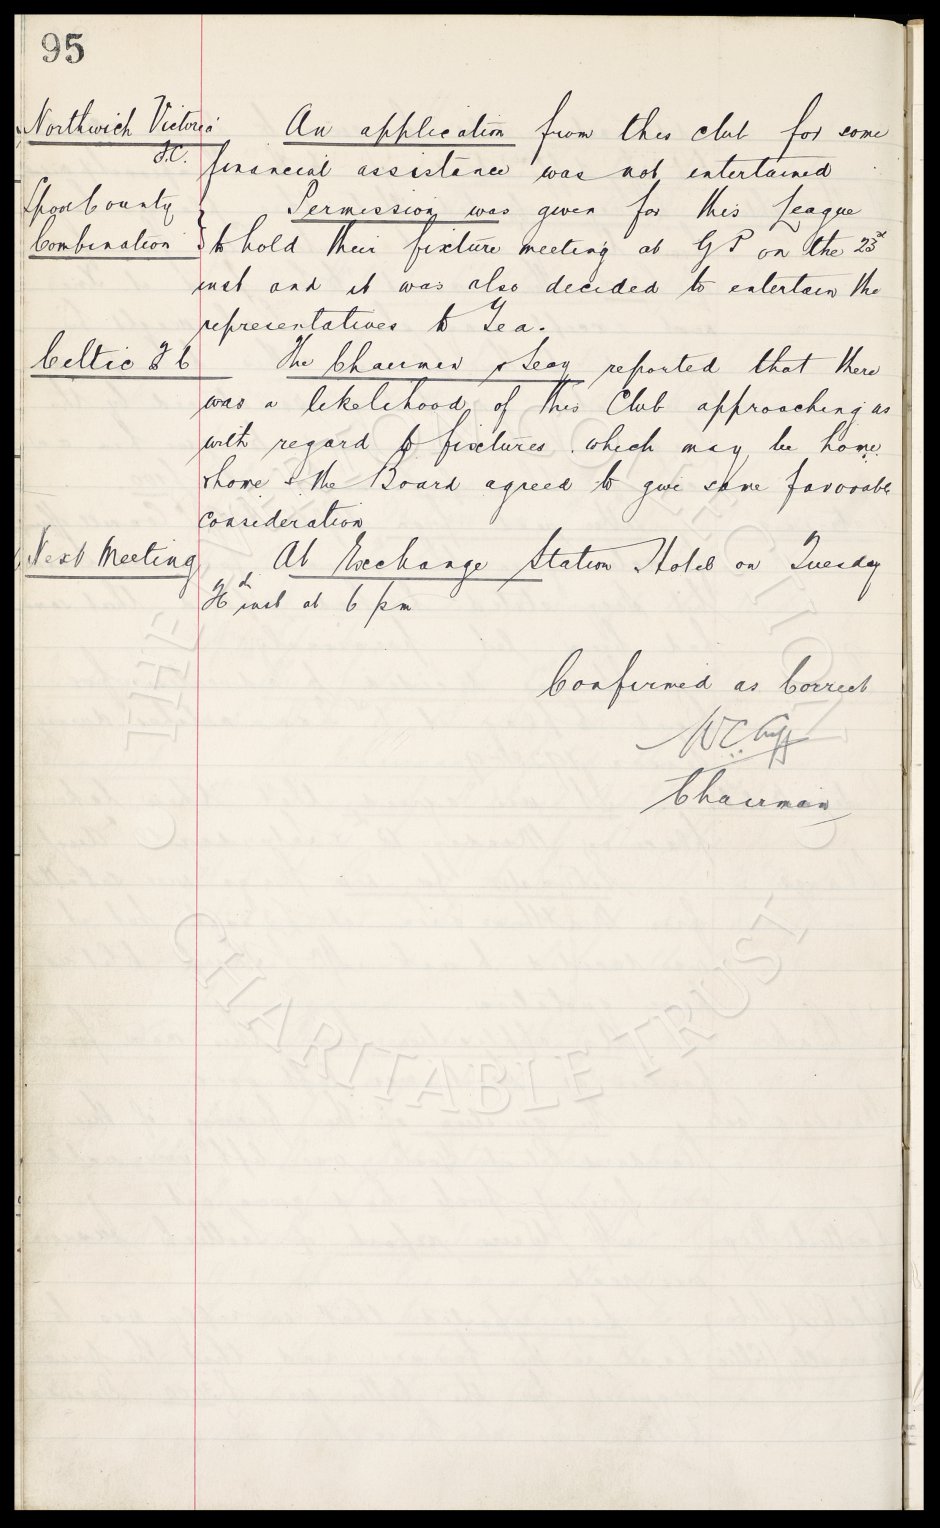 95
Northwich Victoria An application from this club for some
F.C. financial assistance was not entertained
Lpool County Permission was given for this League
Combination to hold their fixture meeting at G P on the 23rd
inst and it was also decided to entertain the
representatives to Tea.
Celtic F C The Chairman & Secy reported that there
was a likelihood of this Club approaching us
with regard to fixtures which may be home
& home & the Board agreed to give same favorable
consideration
Next Meeting At Exchange Station Hotel on Tuesday
inst at 6 pm
Confirmed as Correct
W C Cuff
Chairman
THE EVERTON COLLECTION
CHARITABLE TRUST